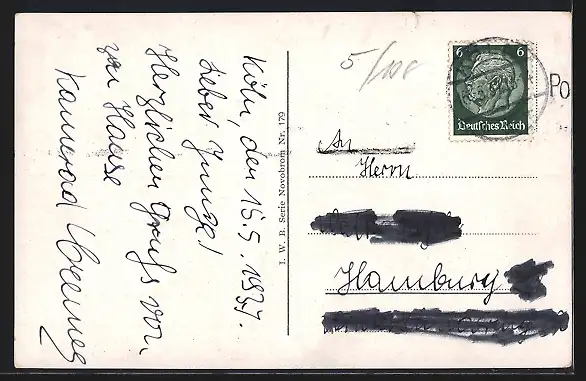 Köln, den 15.5.1937.
Lieber Junge!
Herzlichen Gruß von
zu Hause
Kamerad
I. W. B. Serie Novobrom Nr. 179
5/108
6 6
Deutsches Reich
Po
An
Herrn
Hamburg